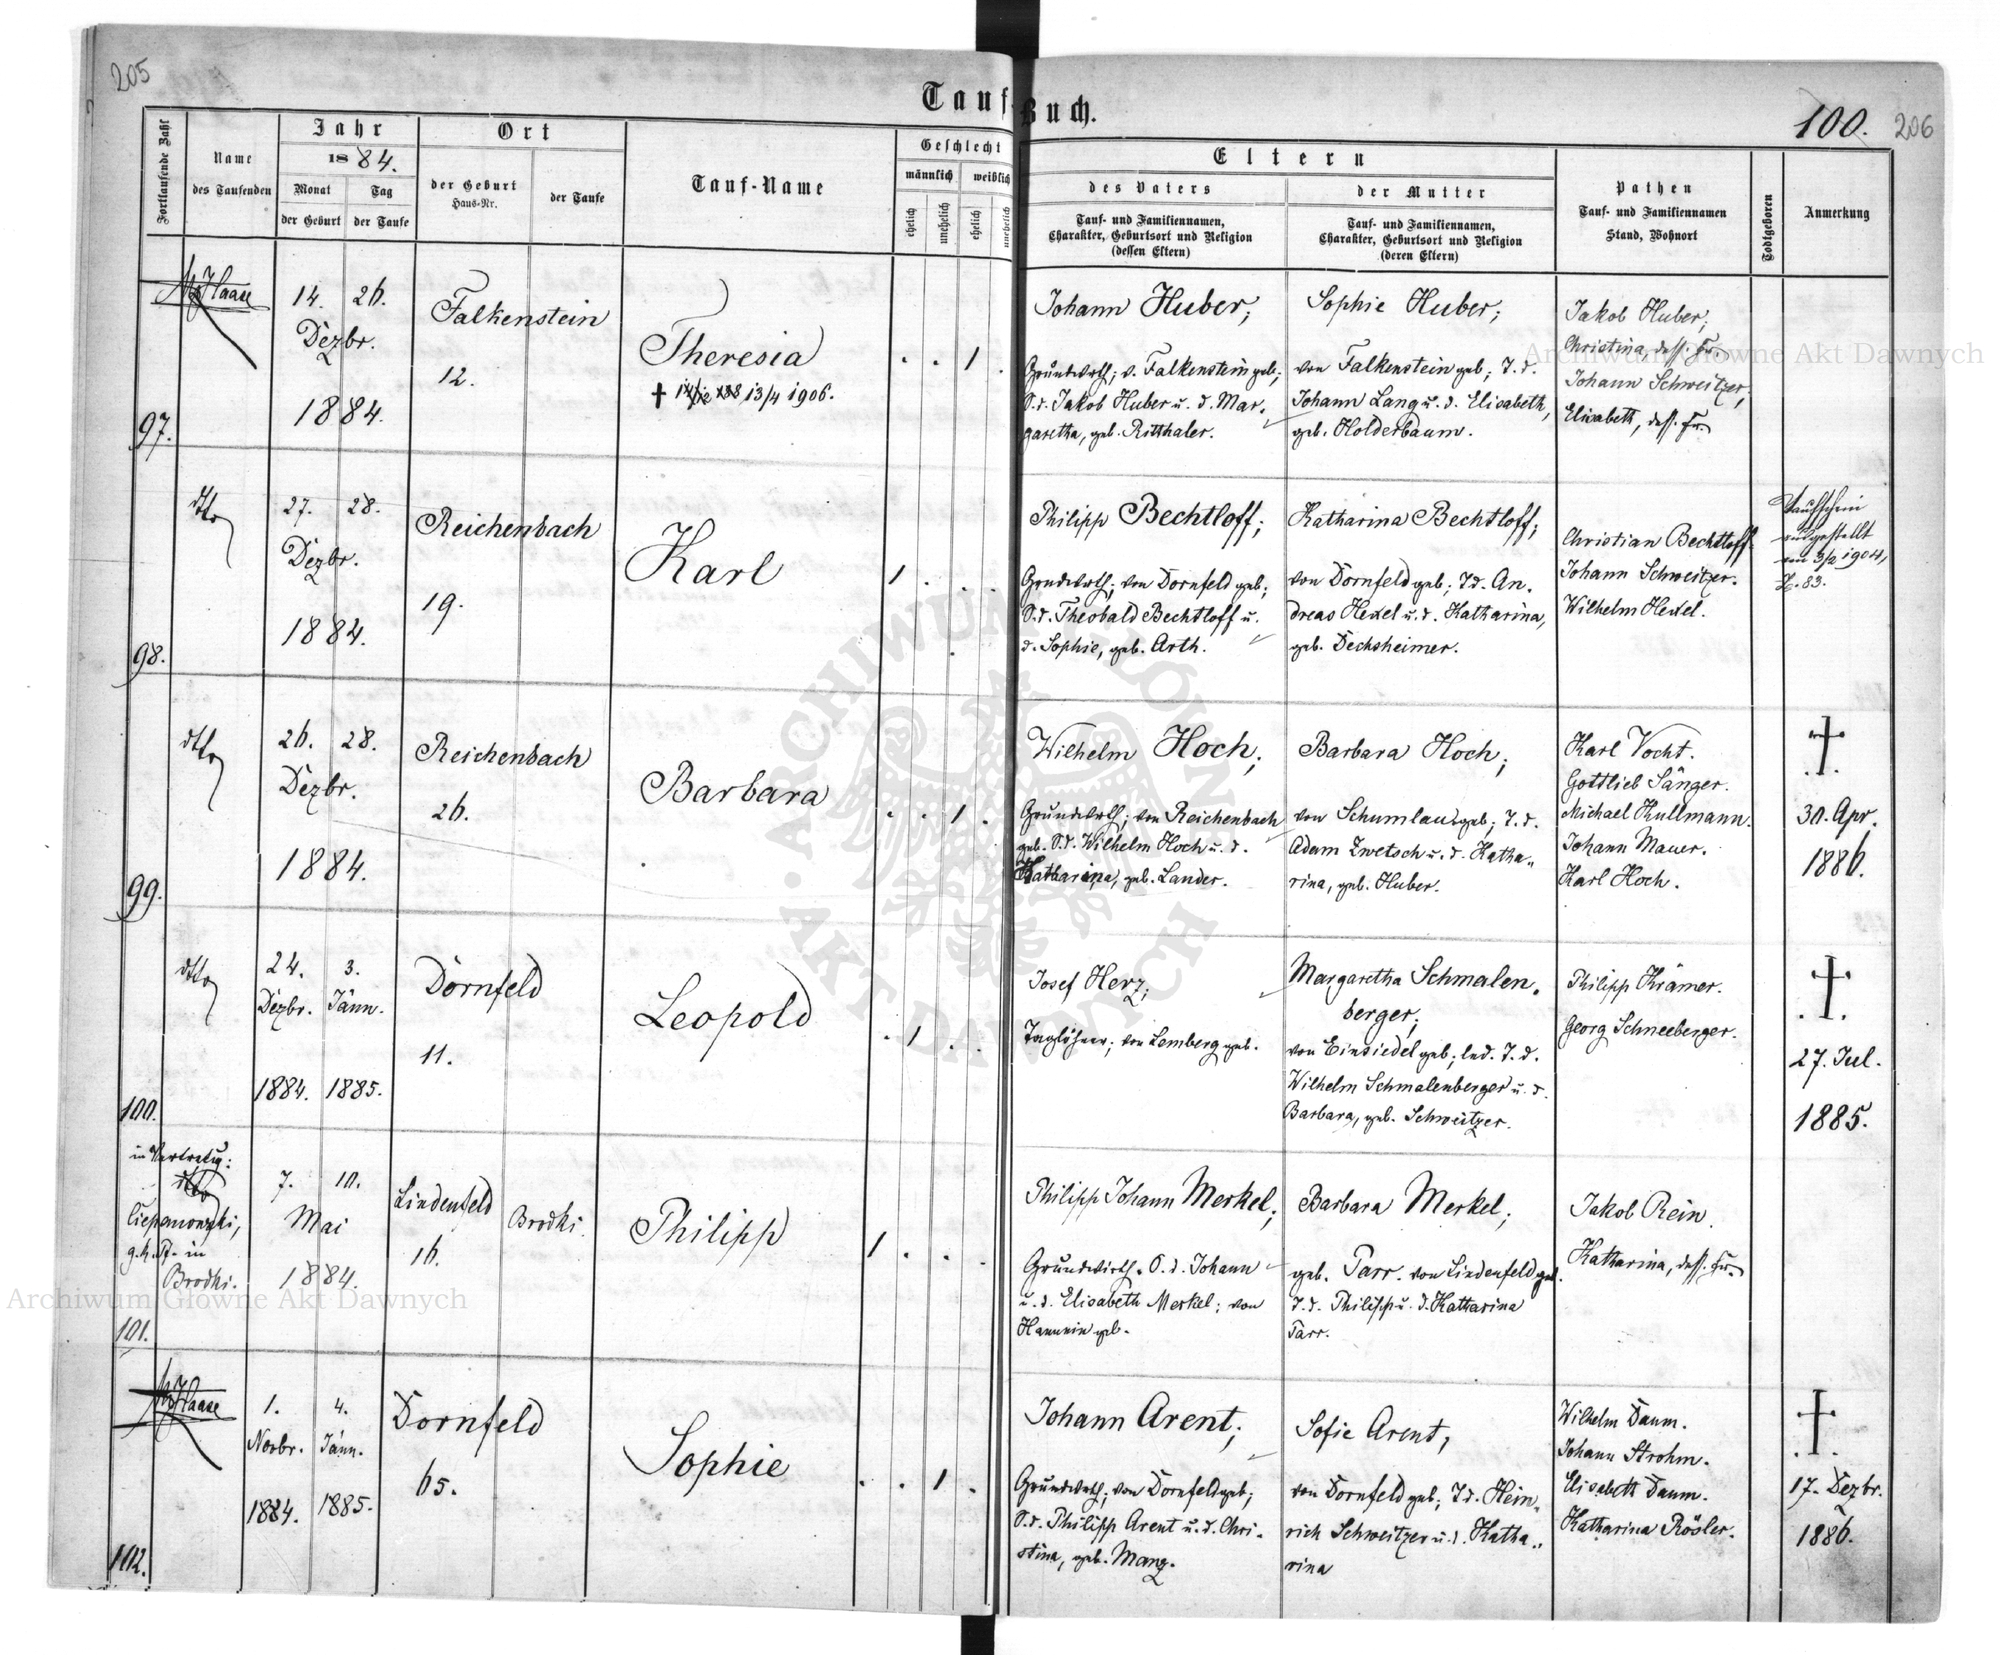 205
Tauf-Buch.
100.
206
Fortlaufende Zahl
Name
des Taufenden
Jahr
1884.
Monat
der Geburt
Tag
der Taufe
Ort
der Geburt
Haus-Nr.
der Taufe
Tauf-Name
Geschlecht
männlich
weiblich
ehelich
unehelich
ehelich
unehelich
Eltern
des Vaters
Tauf- und Familiennamen,
Charakter, Geburtsort und Religion
(dessen Eltern)
der Mutter
Tauf- und Familiennamen,
Charakter, Geburtsort und Religion
(deren Eltern)
Pathen
Tauf- und Familiennamen
Stand, Wohnort
Todtgeboren
Anmerkung
97.
Haase
14. 26.
Dezbr.
1884.
Falkenstein
12.
Theresia
† 13/4 1906.
1
Johann Huber;
Grundwirth; v. Falkenstein geb;
S. d. Jakob Huber u. d. Mar-
garetha, geb. Ritthaler.
Sophie Huber;
von Falkenstein geb; T. d.
Johann Lang u. d. Elisabeth,
geb. Holderbaum.
Jakob Huber;
Christina, dess. Fr.
Johann Schweitzer,
Elisabeth, dess. Fr.
98.
dtto
27. 28.
Dezbr.
1884.
Reichenbach
19.
Karl
1
Philipp Bechtloff;
Grundwirth; von Dornfeld geb;
S. d. Theobald Bechtloff u.
d. Sophie, geb. Arth.
Katharina Bechtloff;
von Dornfeld geb; T. d. An-
dreas Hexel u. d. Katharina,
geb. Decksheimer.
Christian Bechtloff.
Johann Schweitzer.
Wilhelm Hexel.
Taufschein
ausgestellt
am 3/2 1904,
Z. 83.
99.
dtto
26. 28.
Dezbr.
1884.
Reichenbach
26.
Barbara
1
Wilhelm Hoch;
Grundwirth; von Reichenbach
geb. S. d. Wilhelm Hoch u. d.
Katharina, geb. Lander.
Barbara Hoch;
von Schumlau geb; T. d.
Adam Zwetsch u. d. Katha-
rina, geb. Huber.
Karl Vocht.
Gottlieb Sänger.
Michael Kullmann.
Johann Mauer.
Karl Hoch.
†
30. Apr.
1886.
100.
dtto
24. 3.
Dezbr. Jänn.
1884. 1885.
Dornfeld
11.
Leopold
1
Josef Herz;
Taglöhner; von Lemberg geb.
Margaretha Schmalen-
berger;
von Einsiedel geb; led. T. d.
Wilhelm Schmalenberger u. d.
Barbara, geb. Schweitzer.
Philipp Krämer.
Georg Schneeberger.
†
27. Jul.
1885.
101.
in Vertretg:
Brodki.
7. 10.
Mai
1884.
Lindenfeld
16.
Brodki.
Philipp
1
Philipp Johann Merkel;
Grundwirth. S. d. Johann
u. d. Elisabeth Merkel; von
Hannin geb.
Barbara Merkel;
geb. Parr. von Lindenfeld geb.
T. d. Philipp u. d. Katharina
Parr.
Jakob Rein.
Katharina, dess. Fr.
102.
Haase
1. 4.
Novbr. Jänn.
1884. 1885.
Dornfeld
65.
Sophie
1
Johann Arent;
Grundwirth; von Dornfeld geb;
S. d. Philipp Arent u. d. Chri-
stina, geb. Manz.
Sofie Arent,
von Dornfeld geb; T. d. Hein-
rich Schweitzer u. d. Katha-
rina
Wilhelm Daum.
Johann Strohm.
Elisabeth Daum.
Katharina Rösler.
†
17. Dezbr.
1886.
Archiwum Główne Akt Dawnych
Archiwum Główne Akt Dawnych
ARCHIWUM GŁÓWNE
AKT DAWNYCH